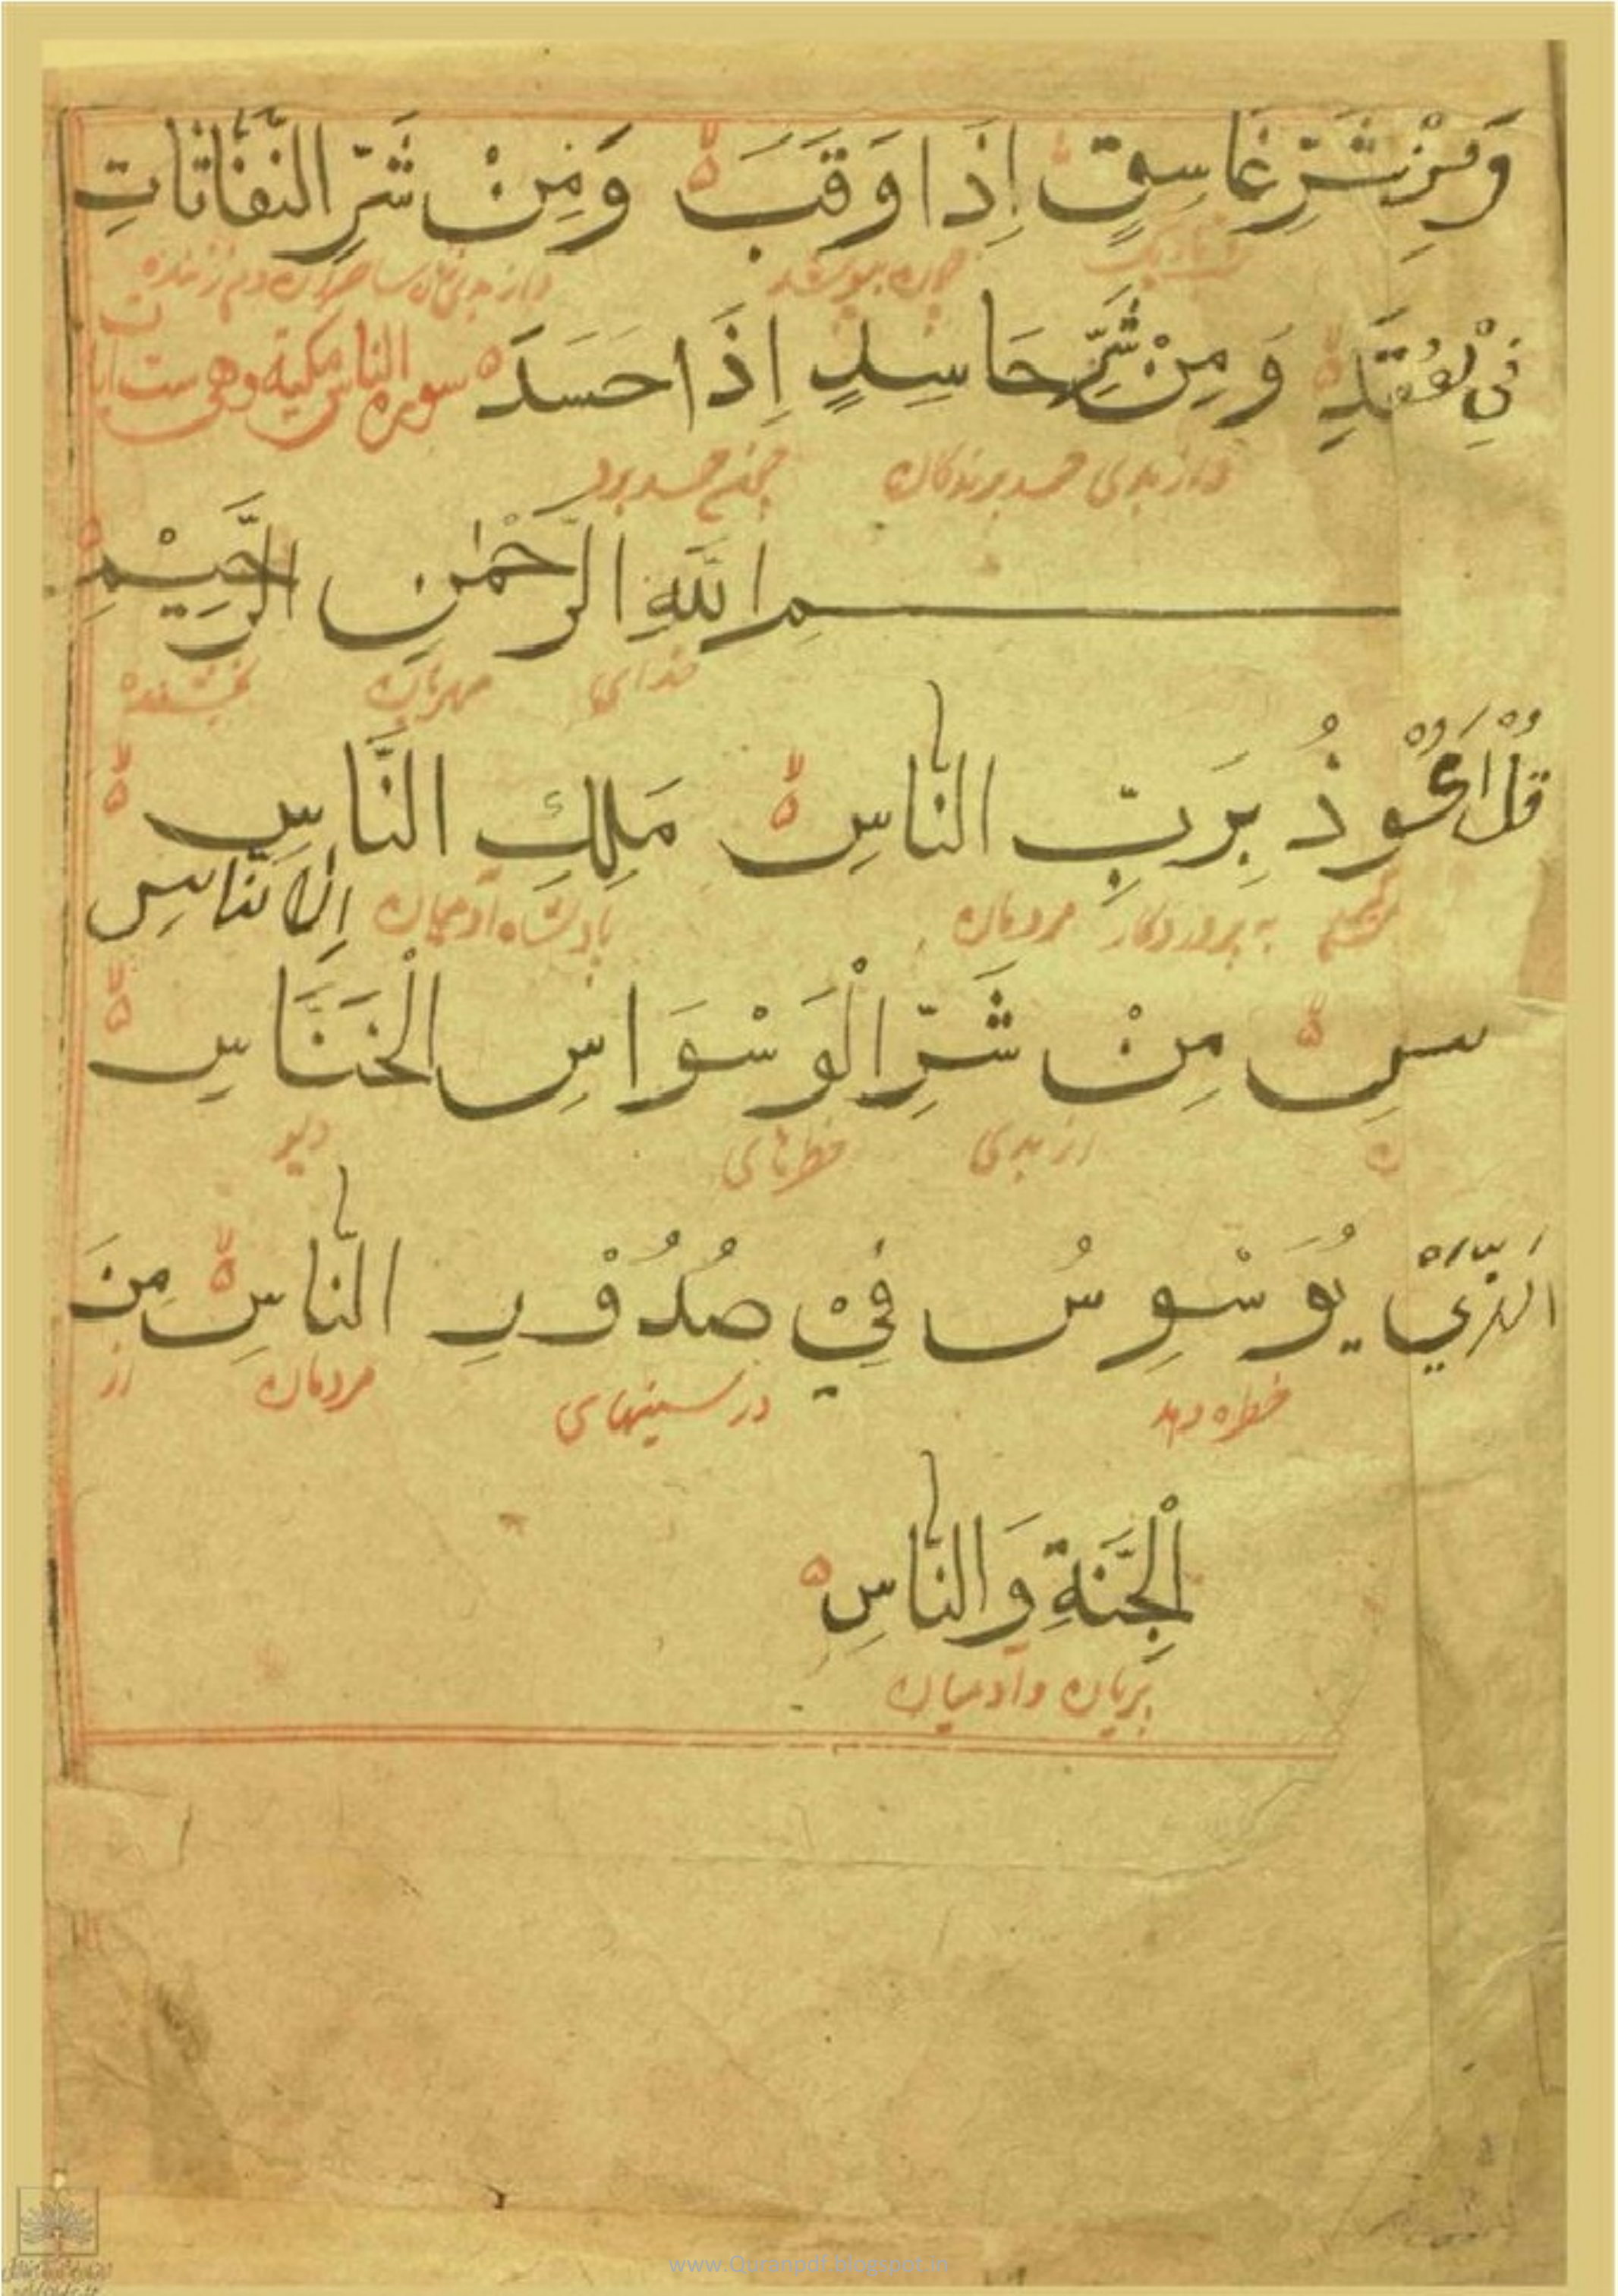 وَمِنْ شَرِّ غَاسِقٍ إِذَا وَقَبَ وَمِنْ شَرِّ النَّفَّاثَاتِ
چون بپوشد
فِي الْعُقَدِ وَمِنْ شَرِّ حَاسِدٍ إِذَا حَسَدَ سورة الناس مكية وهى ست ايات
واز بدی حسد برندکان چون حسد برد
سم اللهِ الرَّحْمٰنِ الرَّحِيْمِ
خدای مهربان بخشنده
قُلْ اَعُوْذُ بِرَبِّ النَّاسِ مَلِكِ النَّاسِ
به پروردکار مردمان پادشاه آدمیان
اِلٰهِ النَّاسِ
سِ مِنْ شَرِّ الْوَسْوَاسِ الْخَنَّاسِ
از بدی خطرهای دیو
الَّذِيْ يُوَسْوِسُ فِيْ صُدُوْرِ النَّاسِ مِنَ
خطره دهد در سینهای مردمان از
الْجِنَّةِ وَالنَّاسِ
پریان وآدمیان
www.Quranpdf.blogspot.in